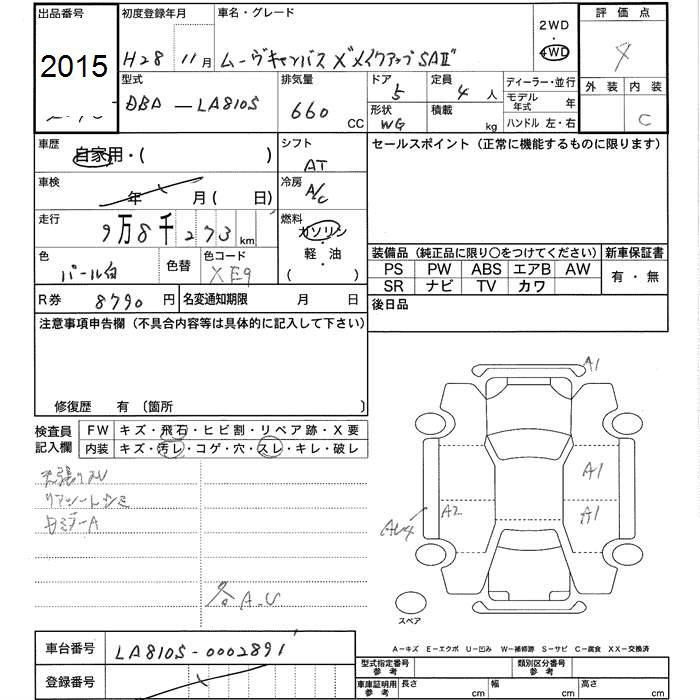 出品番号 初度登録年月 車名・グレード 2WD・4WD 評価点
2015 H28 11月 ムーヴキャンバス Xメイクアップ SAⅡ 4
型式 排気量 ドア 定員 ディーラー・並行 外装 内装
DBA - LA810S 660 CC 5 4人 モデル年式 年 C
形状 積載
WG kg ハンドル 左・右
車歴 シフト セールスポイント (正常に機能するものに限ります)
自家用・( ) AT
車検 冷房
年 月( 日) A/C
走行 燃料
9万8千273km ガソリン・軽油
色 色替 色コード ( ) 装備品 (純正品に限り○をつけてください) 新車保証書
パール白 XE9 PS PW ABS エアB AW 有・無
SR ナビ TV カワ
R券 8790円 名変通知期限 月 日 後日品
注意事項申告欄 (不具合内容等は具体的に記入して下さい)
修復歴 有 〔箇所 〕
検査員記入欄 FW キズ・飛石・ヒビ割・リペア跡・X要
内装 キズ・汚レ・コゲ・穴・スレ・キレ・破レ
天張りスレ
リアシートシミ
各A.U
A1
A1
A2 A1
スペア
A-キズ E-エクボ U-凹み W-補修跡 S-サビ C-腐食 XX-交換済
車台番号 LA810S-0002891
登録番号
型式指定番号 参考 類別区分番号 参考
車庫証明用 参考 長さ cm 幅 cm 高さ cm